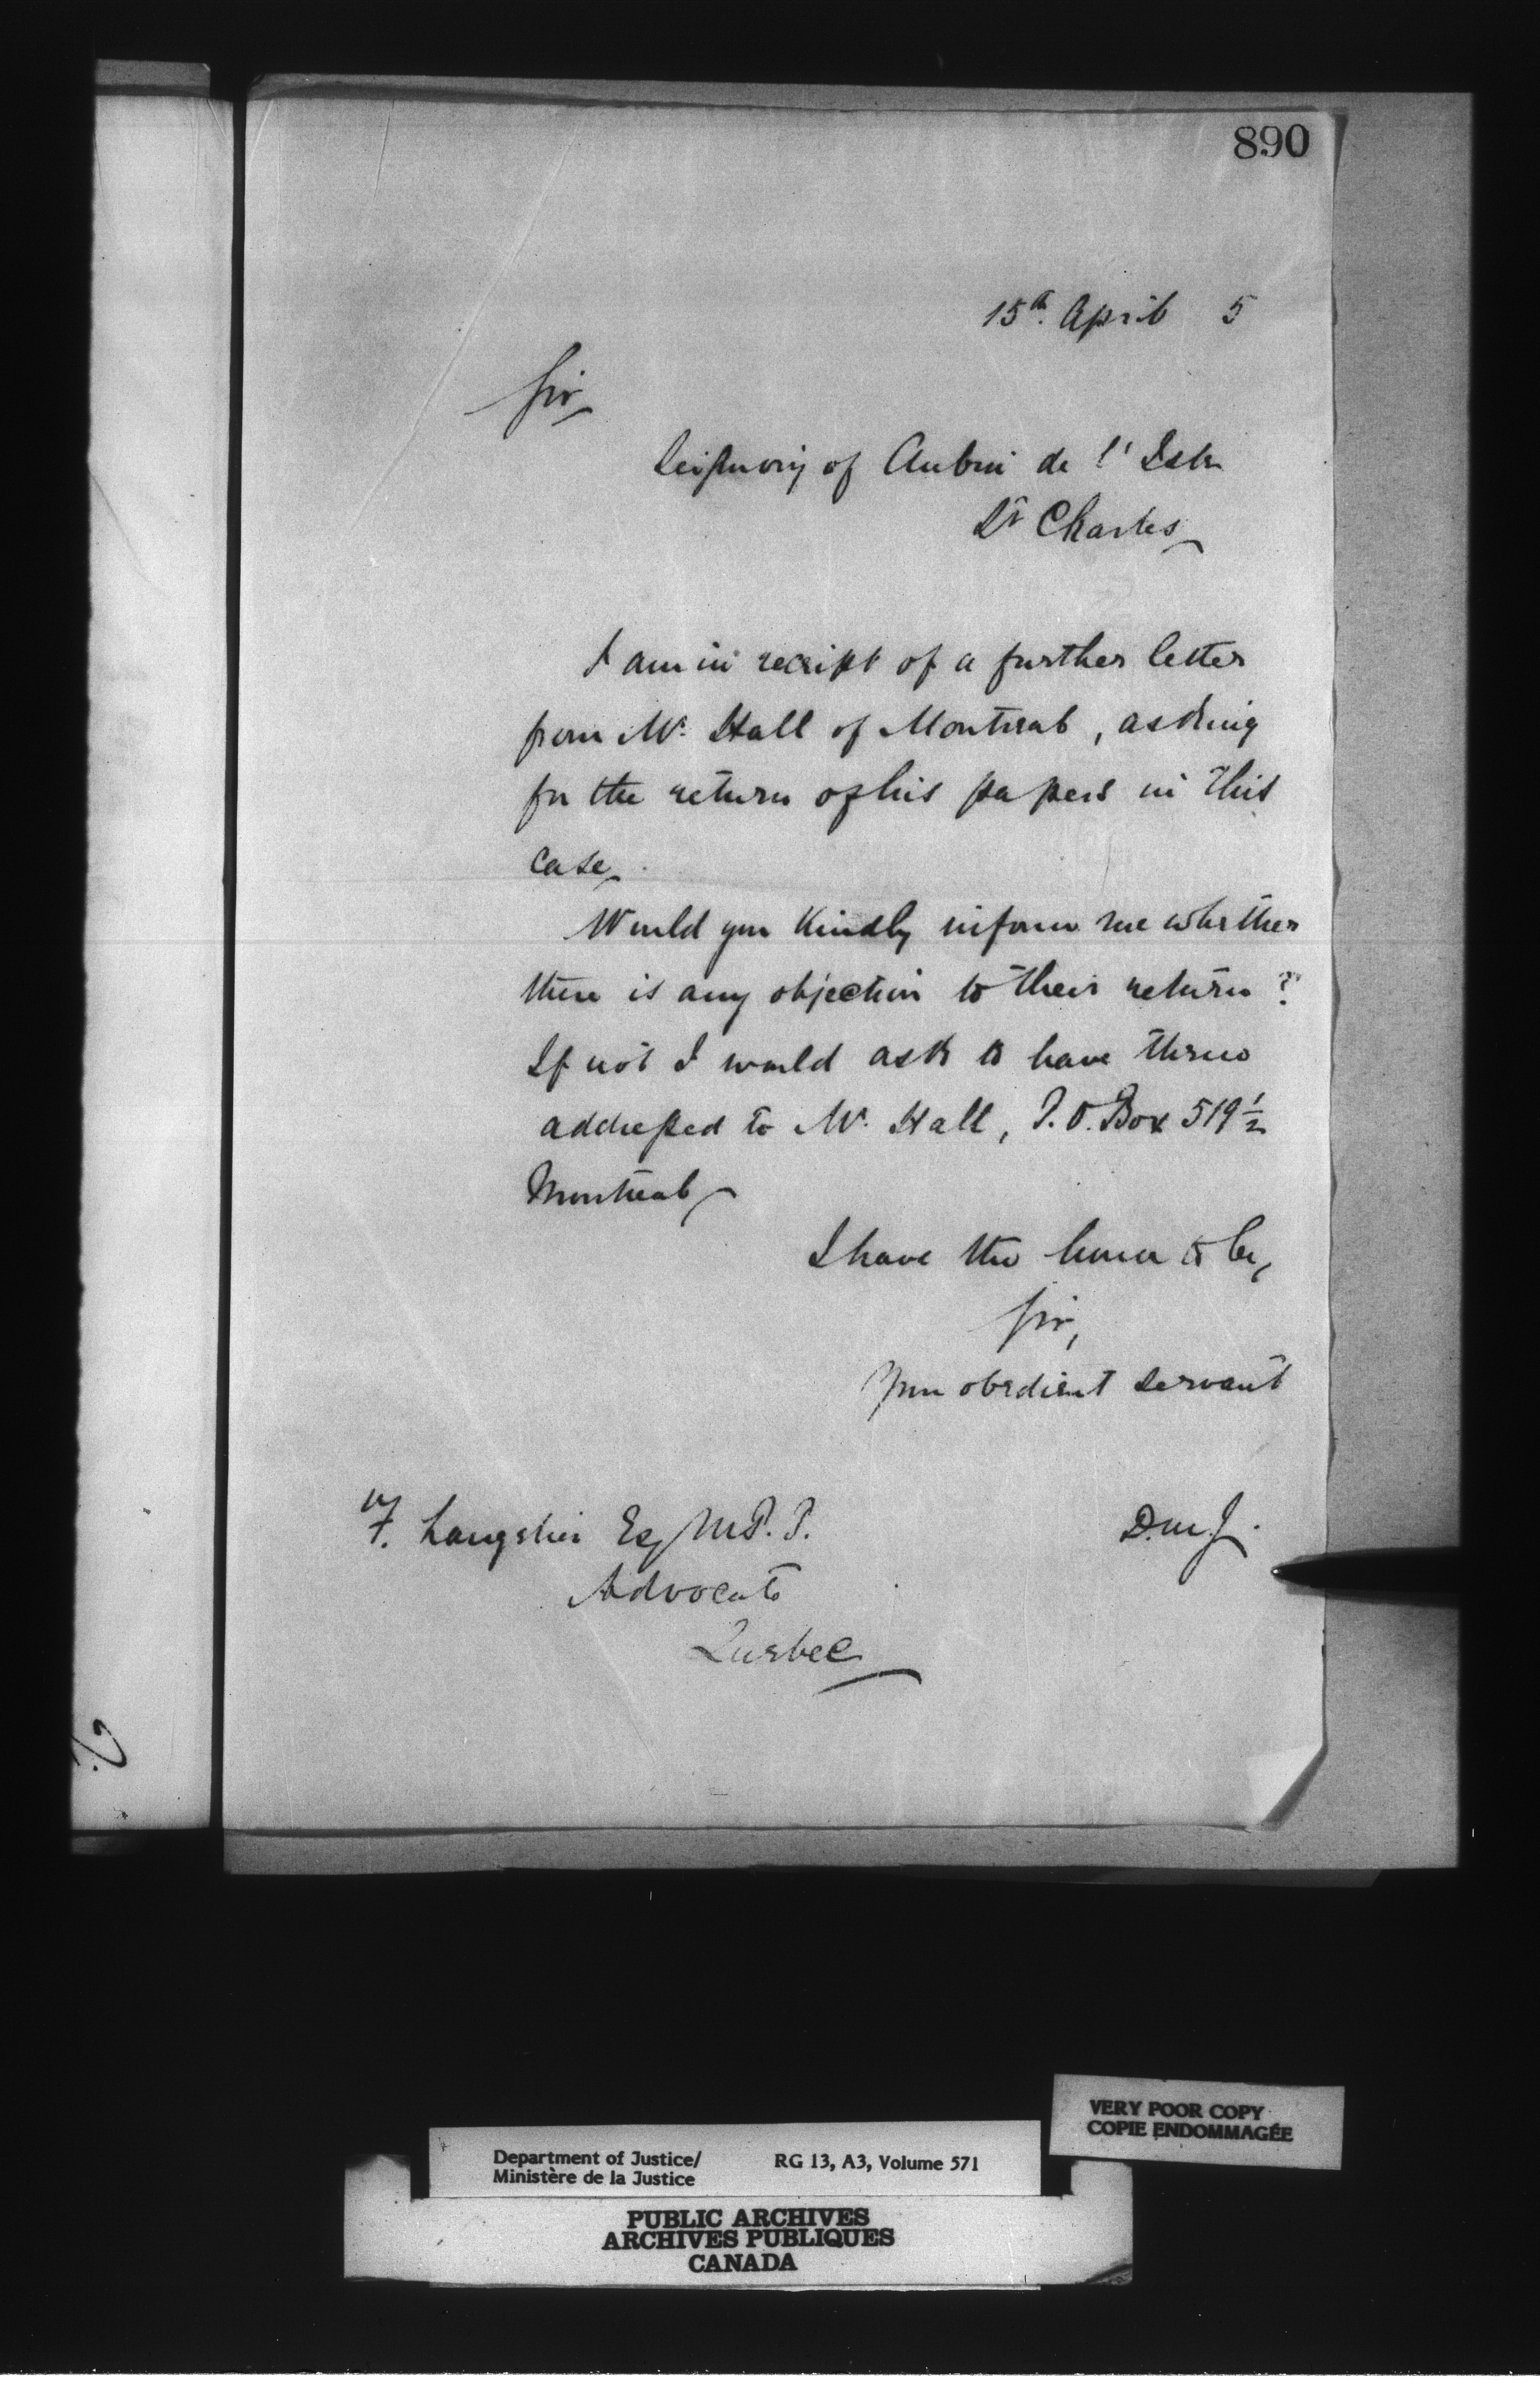 890
15th. April 5
Sir,
Seigniory of Aubin de l'Isle
St Charles
I am in receipt of a further letter
from Mr. Hall of Montreal, asking
for the return of his papers in this
case.
Would you kindly inform me whether
there is any objection to their return?
If not I would ask to have them
addressed to Mr. Hall, P.O. Box 519 1/2
Montreal
I have the honor to be,
Sir,
Your obedient servant
F. Langelier Esq M.P.P.
D.M.J.
Advocate
Quebec
VERY POOR COPY
COPIE ENDOMMAGÉE
Department of Justice/ RG 13, A3, Volume 571
Ministère de la Justice
PUBLIC ARCHIVES
ARCHIVES PUBLIQUES
CANADA